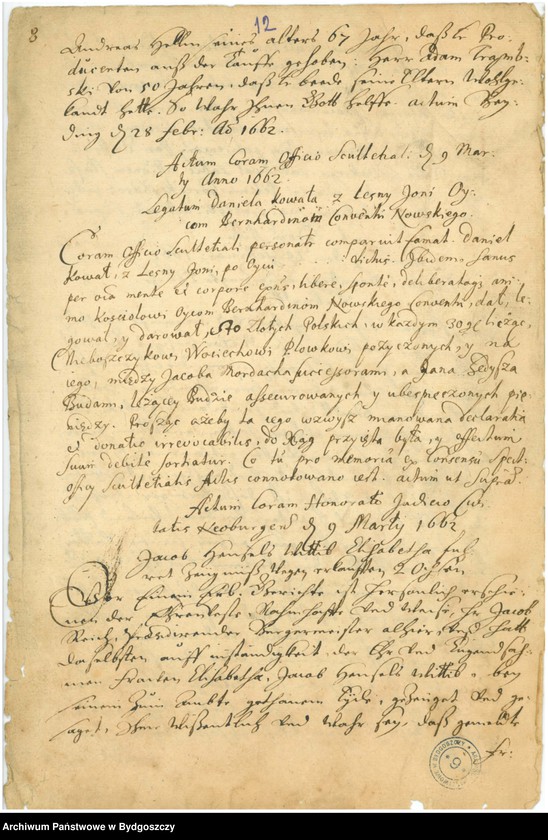 8
12
Andreas Hellm seines alters 67 Jahr, daß le Pro-
ducenten auß der Tauffe gehoben: Herr Adam Tramb-
ski von 50 Jahren, daß le beede seine Eltern
landt hette. So wahr Ihnen Gott helffe. actum
ding d 28 febr: Ao 1662.
Actum Coram Officio Scultetiali d 9 Mar-
ty Anno 1662.
Legatum Daniela Kowala z Lesny Joni Oy-
com Bernhardinom Conventu Nowskiego.
Coram Officio Scultetiali personaliter comparuit famat. Daniel
Kowal, z Lesny Joni, po Oycu Ibidem, sanus
per oia mente et corpore, libere, sponte, deliberatoq ani-
mo Kosciolowi Oycom Bernhardinom Nowskiego Conventu, dal, le-
gowal, y darowal, 40 zlotych Polskich, w kazdym 30 gl lieząc,
Nieboszczykowi Wociechowi Plowkowi pozyczonych, y na
iego, między Jacoba Mordacha successorami, a Jana Sedysza
Budami, lezącey Budzie assecurowanych y ubespeczonych pie-
niędzy. Prosząc azeby ta iego wzwysz mianowana declaratia
et donatio irrevocabilis, do Xiąg przyięta byla, y effectum
suum debite sortiatur. Co tu pro memoria ex Consensu Spect:
officy Scultetialis Actis connotowano iest. actum ut supra.
Actum Coram Honorato Judicio Civi-
tatis Neoburgens d 9 Marty 1662
Jacob Hensels Wittib Elisabetha
ret Zeugniß wegen erkaufften 2 Ochsen
Vor Einem Erb. Gerichte ist Persönlich erschie-
nen der Ehrenveste, Nahmhaffte und Weise, H. Jacob
Reich, Præsidirender Bürgermeister alhier, und hatt
daselbsten auff instandigkeit, der Ehr und Tugendsah-
men Frauen Elisabetha, Jacob Hensels Wittib, bey
seinem zum Ambte gethanem Eyde, gezeuget und ge-
saget, Ihme wißentlich und wahr sey, daß gemelte
Fr:
ARCHIWUM W BYDGOSZCZY
9
Archiwum Państwowe w Bydgoszczy